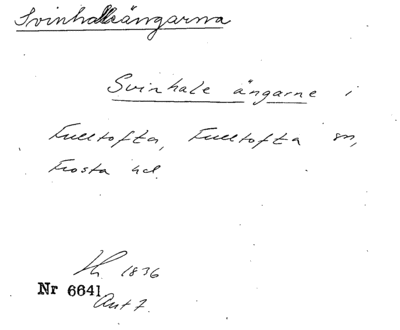 Svinhaleängarna
Svinhale ängarne i
Fulltofta, Fulltofta sn,
Frosta hd.
1836
Nr 6641
Ant 7.